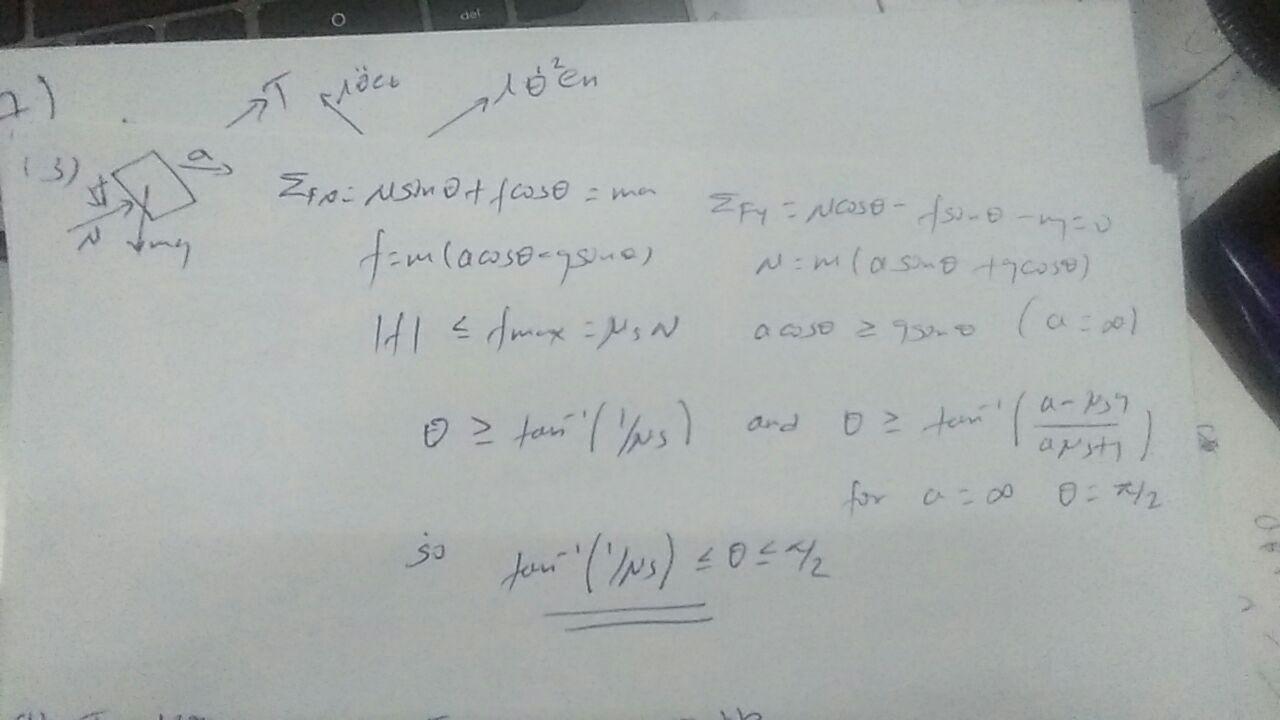 del
7)
T lθ̈et lθ̇²en
(3) a
f
N
mg
ΣFx = Nsinθ + fcosθ = ma ΣFy = Ncosθ - fsinθ - mg = 0
f = m(acosθ - gsinθ) N = m(asinθ + gcosθ)
|f| ≤ fmax = μsN acosθ ≥ gsinθ (a = ∞)
θ ≥ tan⁻¹(1/μs) and θ ≥ tan⁻¹((a - μsg)/(aμs + g))
for a = ∞ θ = π/2
so tan⁻¹(1/μs) ≤ θ ≤ π/2